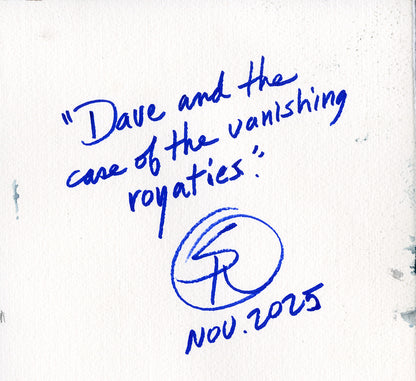 "Dave and the
case of the vanishing
royaties".
SR
NOV. 2025